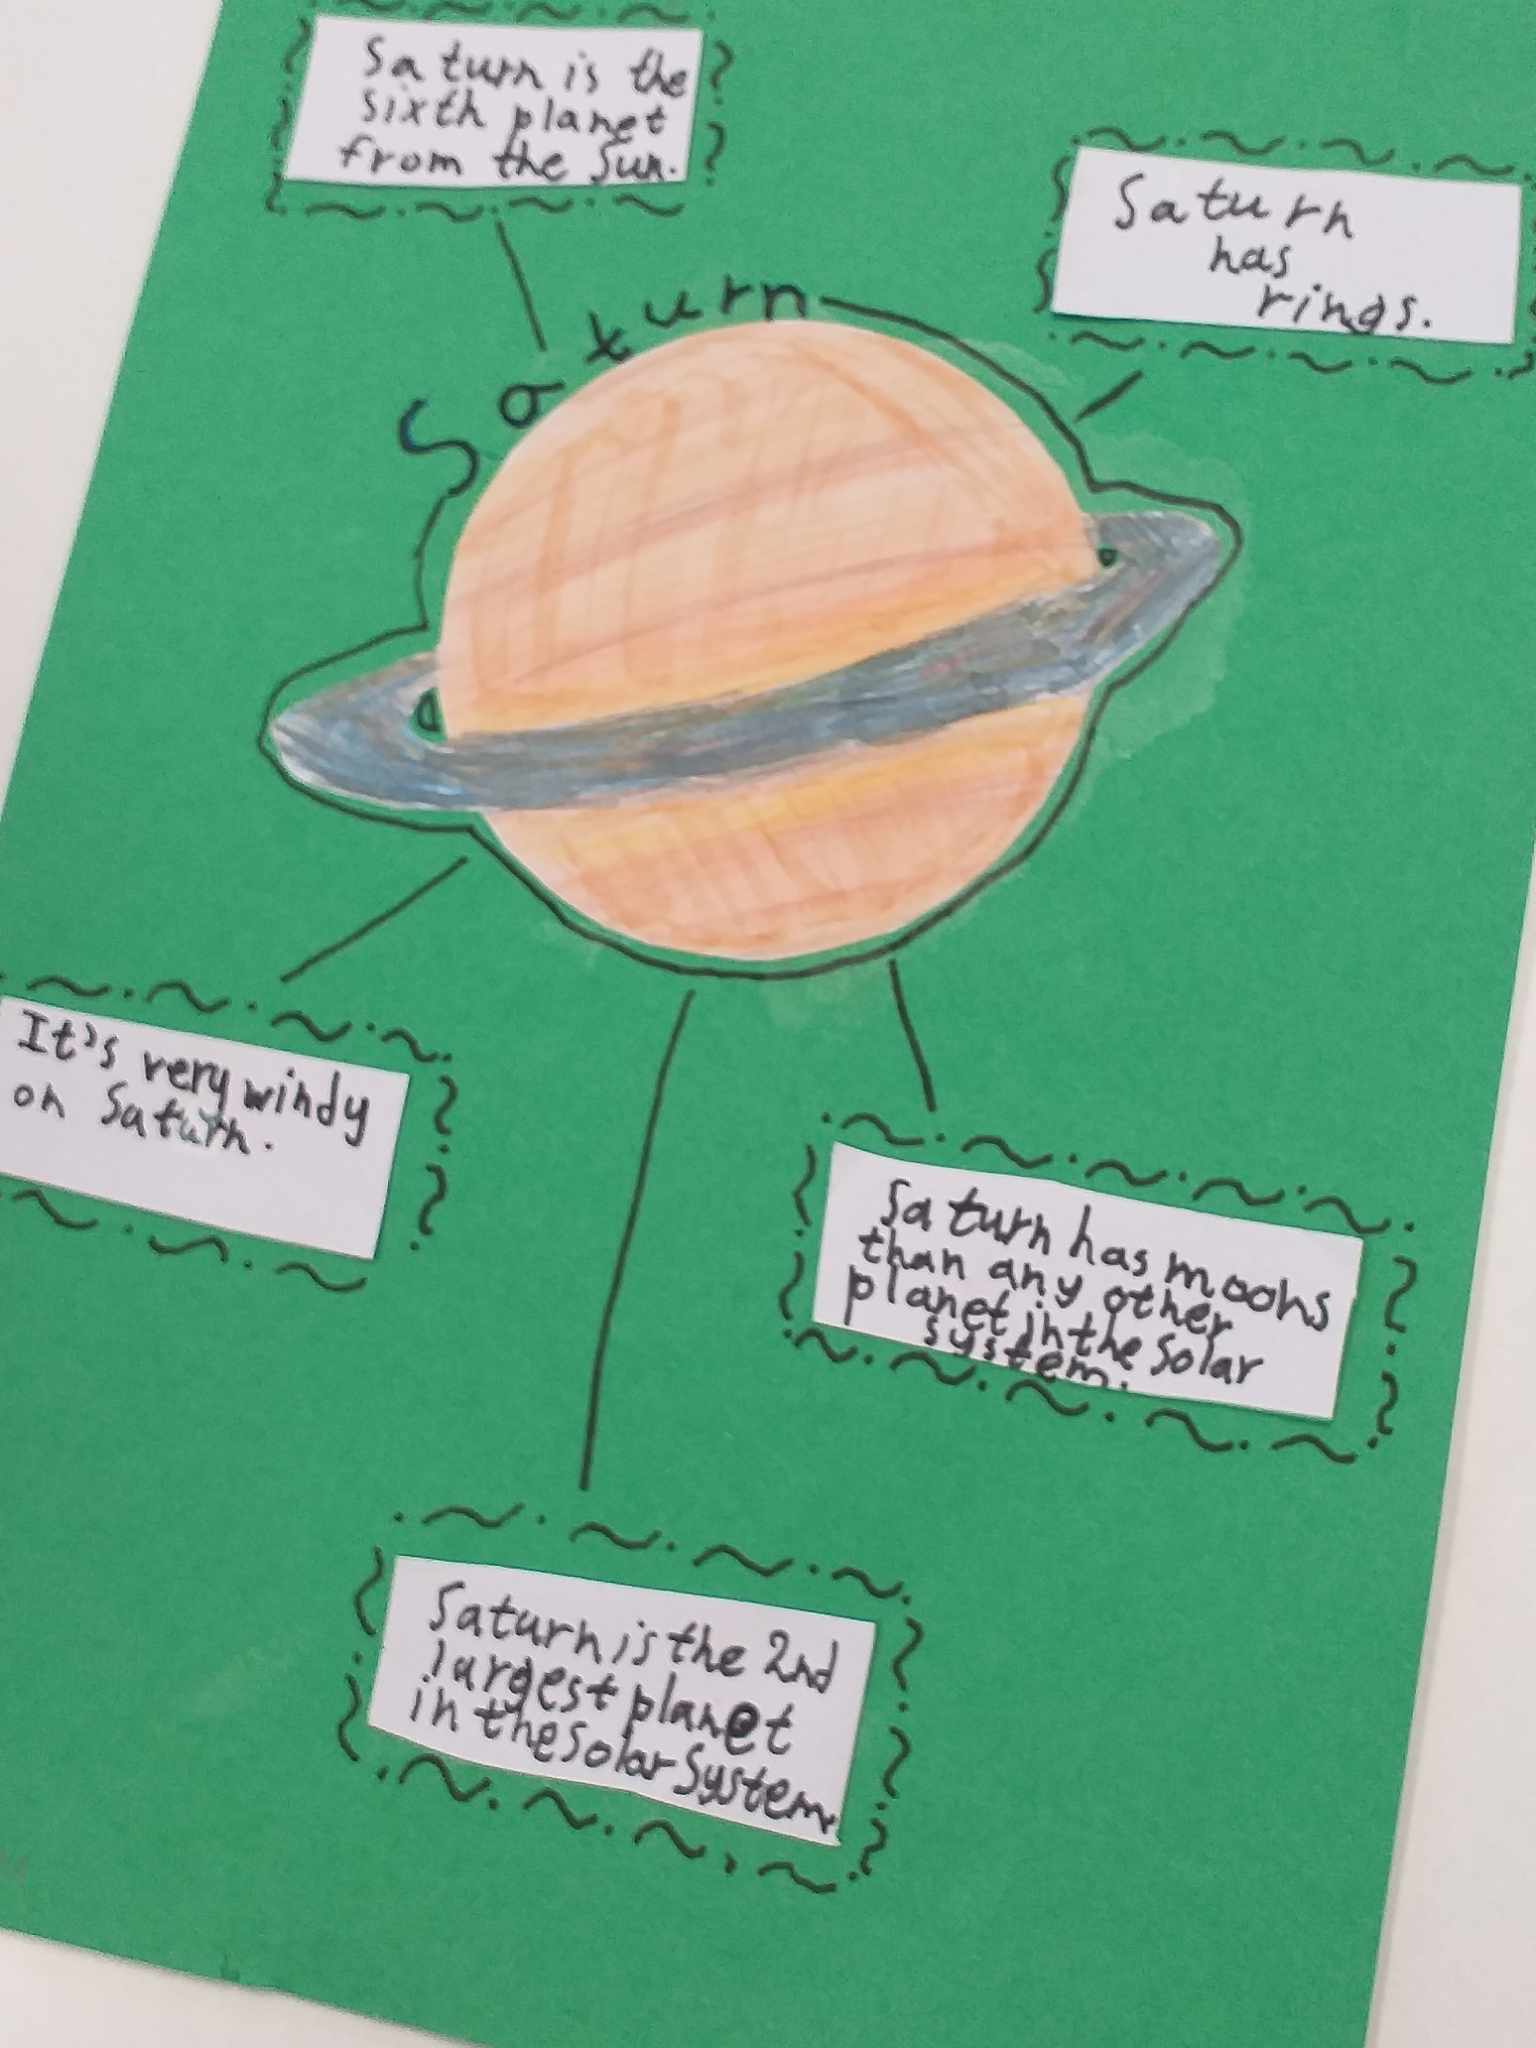 Saturn is the
sixth planet
from the Sun.
Saturn
has
rings.
Saturn
It's very windy
on Saturn.
Saturn has moons
than any other
planet in the Solar
system.
Saturn is the 2nd
largest planet
in the Solar System.